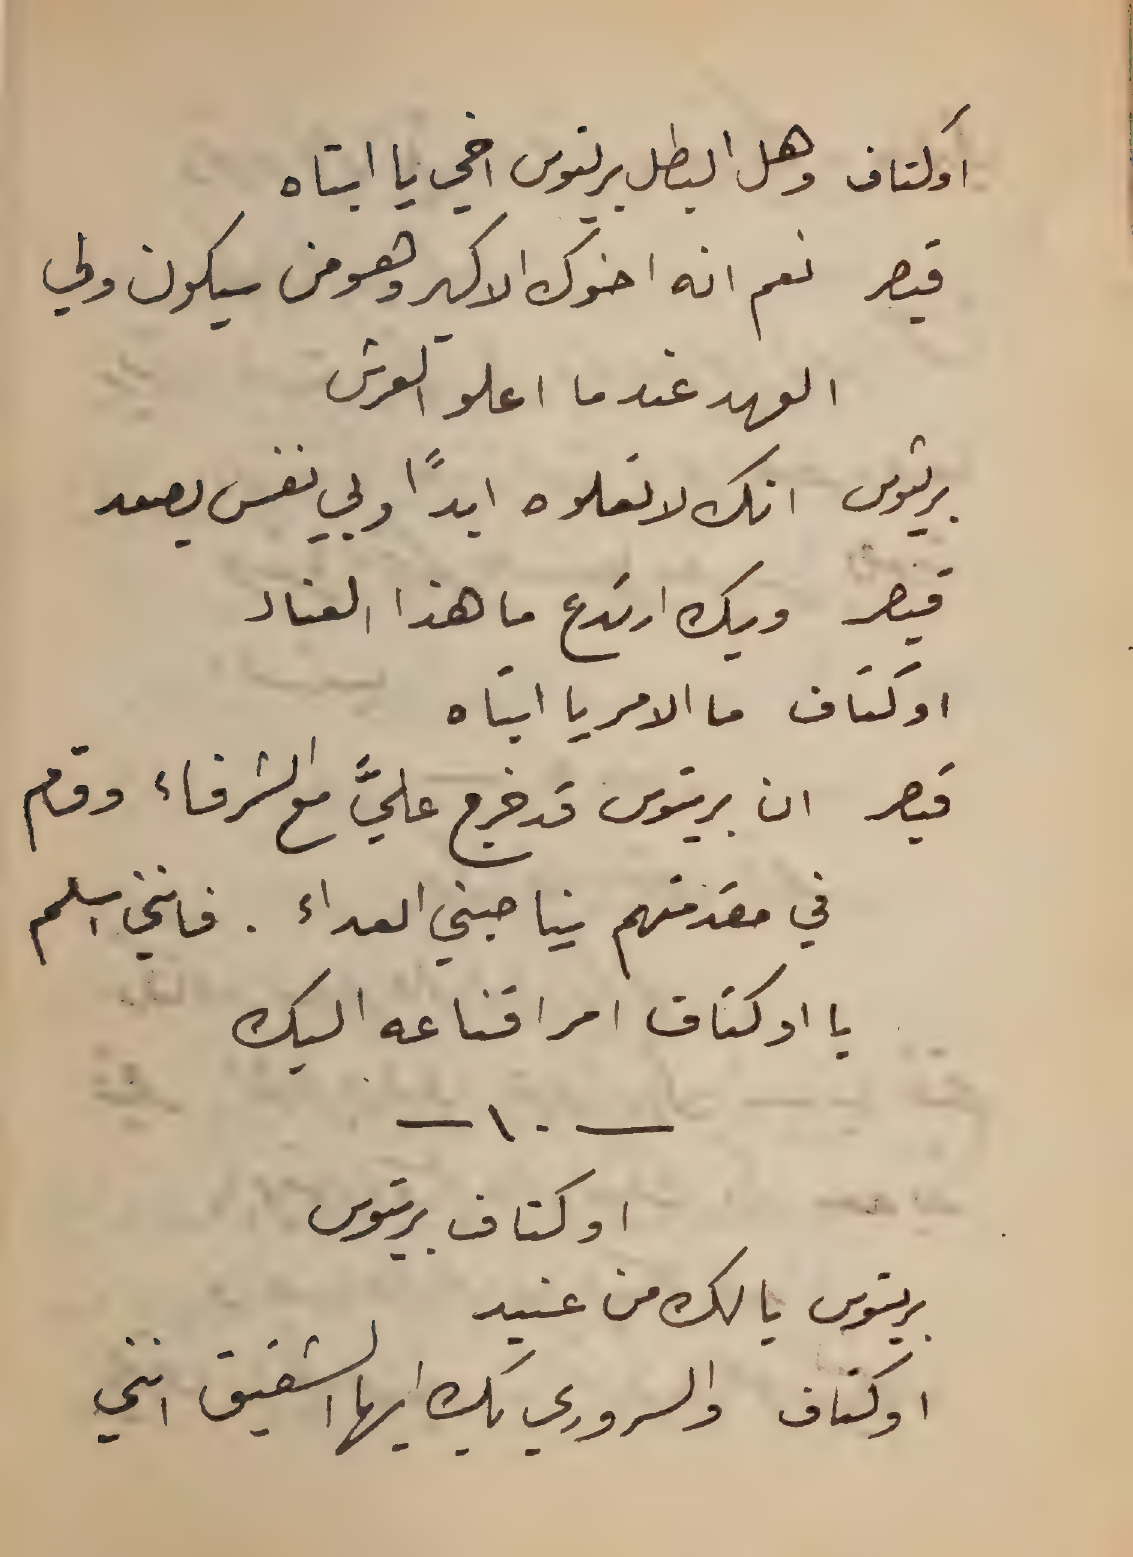 اوكتاف وهل البطل بريتوس اخي يا ابتاه
قيصر نعم انه اخوك الاكبر وهو من سيكون ولي
العهد عندما اعلو العرش
بريتوس انك لا تعلوه ابدًا وبي نفس يصعد
قيصر ويك ارتدع ما هذا العناد
اوكتاف ما الامر يا ابتاه
قيصر ان بريتوس قد خرج عليَّ مع الشرفاء وقام
في مقدمتهم يناصبني العداء . فانني اسلم
يا اوكتاف امر اقناعه اليك
— ١٠ —
اوكتاف بريتوس
بريتوس يا لك من عنيد
اوكتاف والسروري بك ايها الشقيق انني